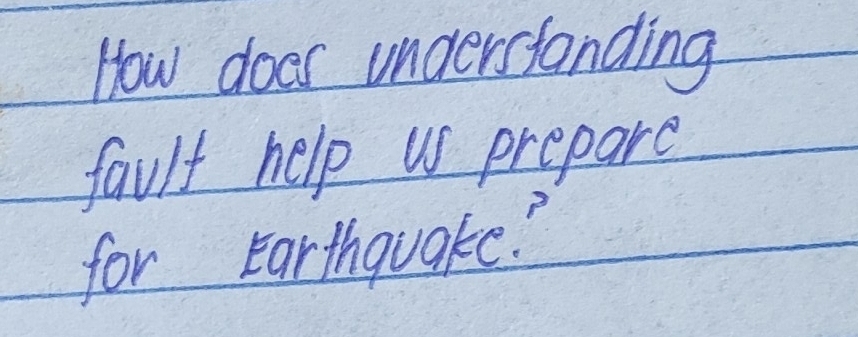 How does understanding
fault help us prepare
for Earthquake.?